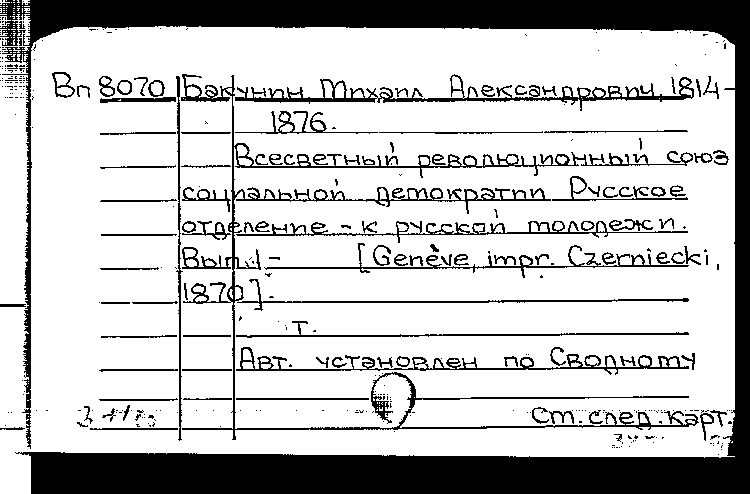 Вп 8070 Бакунин, Михаил Александрович, 1814-
1876.
Всесветный революционный союз
социальной демократии Русское
отделение - к русской молодежи.
Вып. 1- [Genève, impr. Czerniecki,
1870].
т.
Авт. установлен по Сводному
См. след. карт.